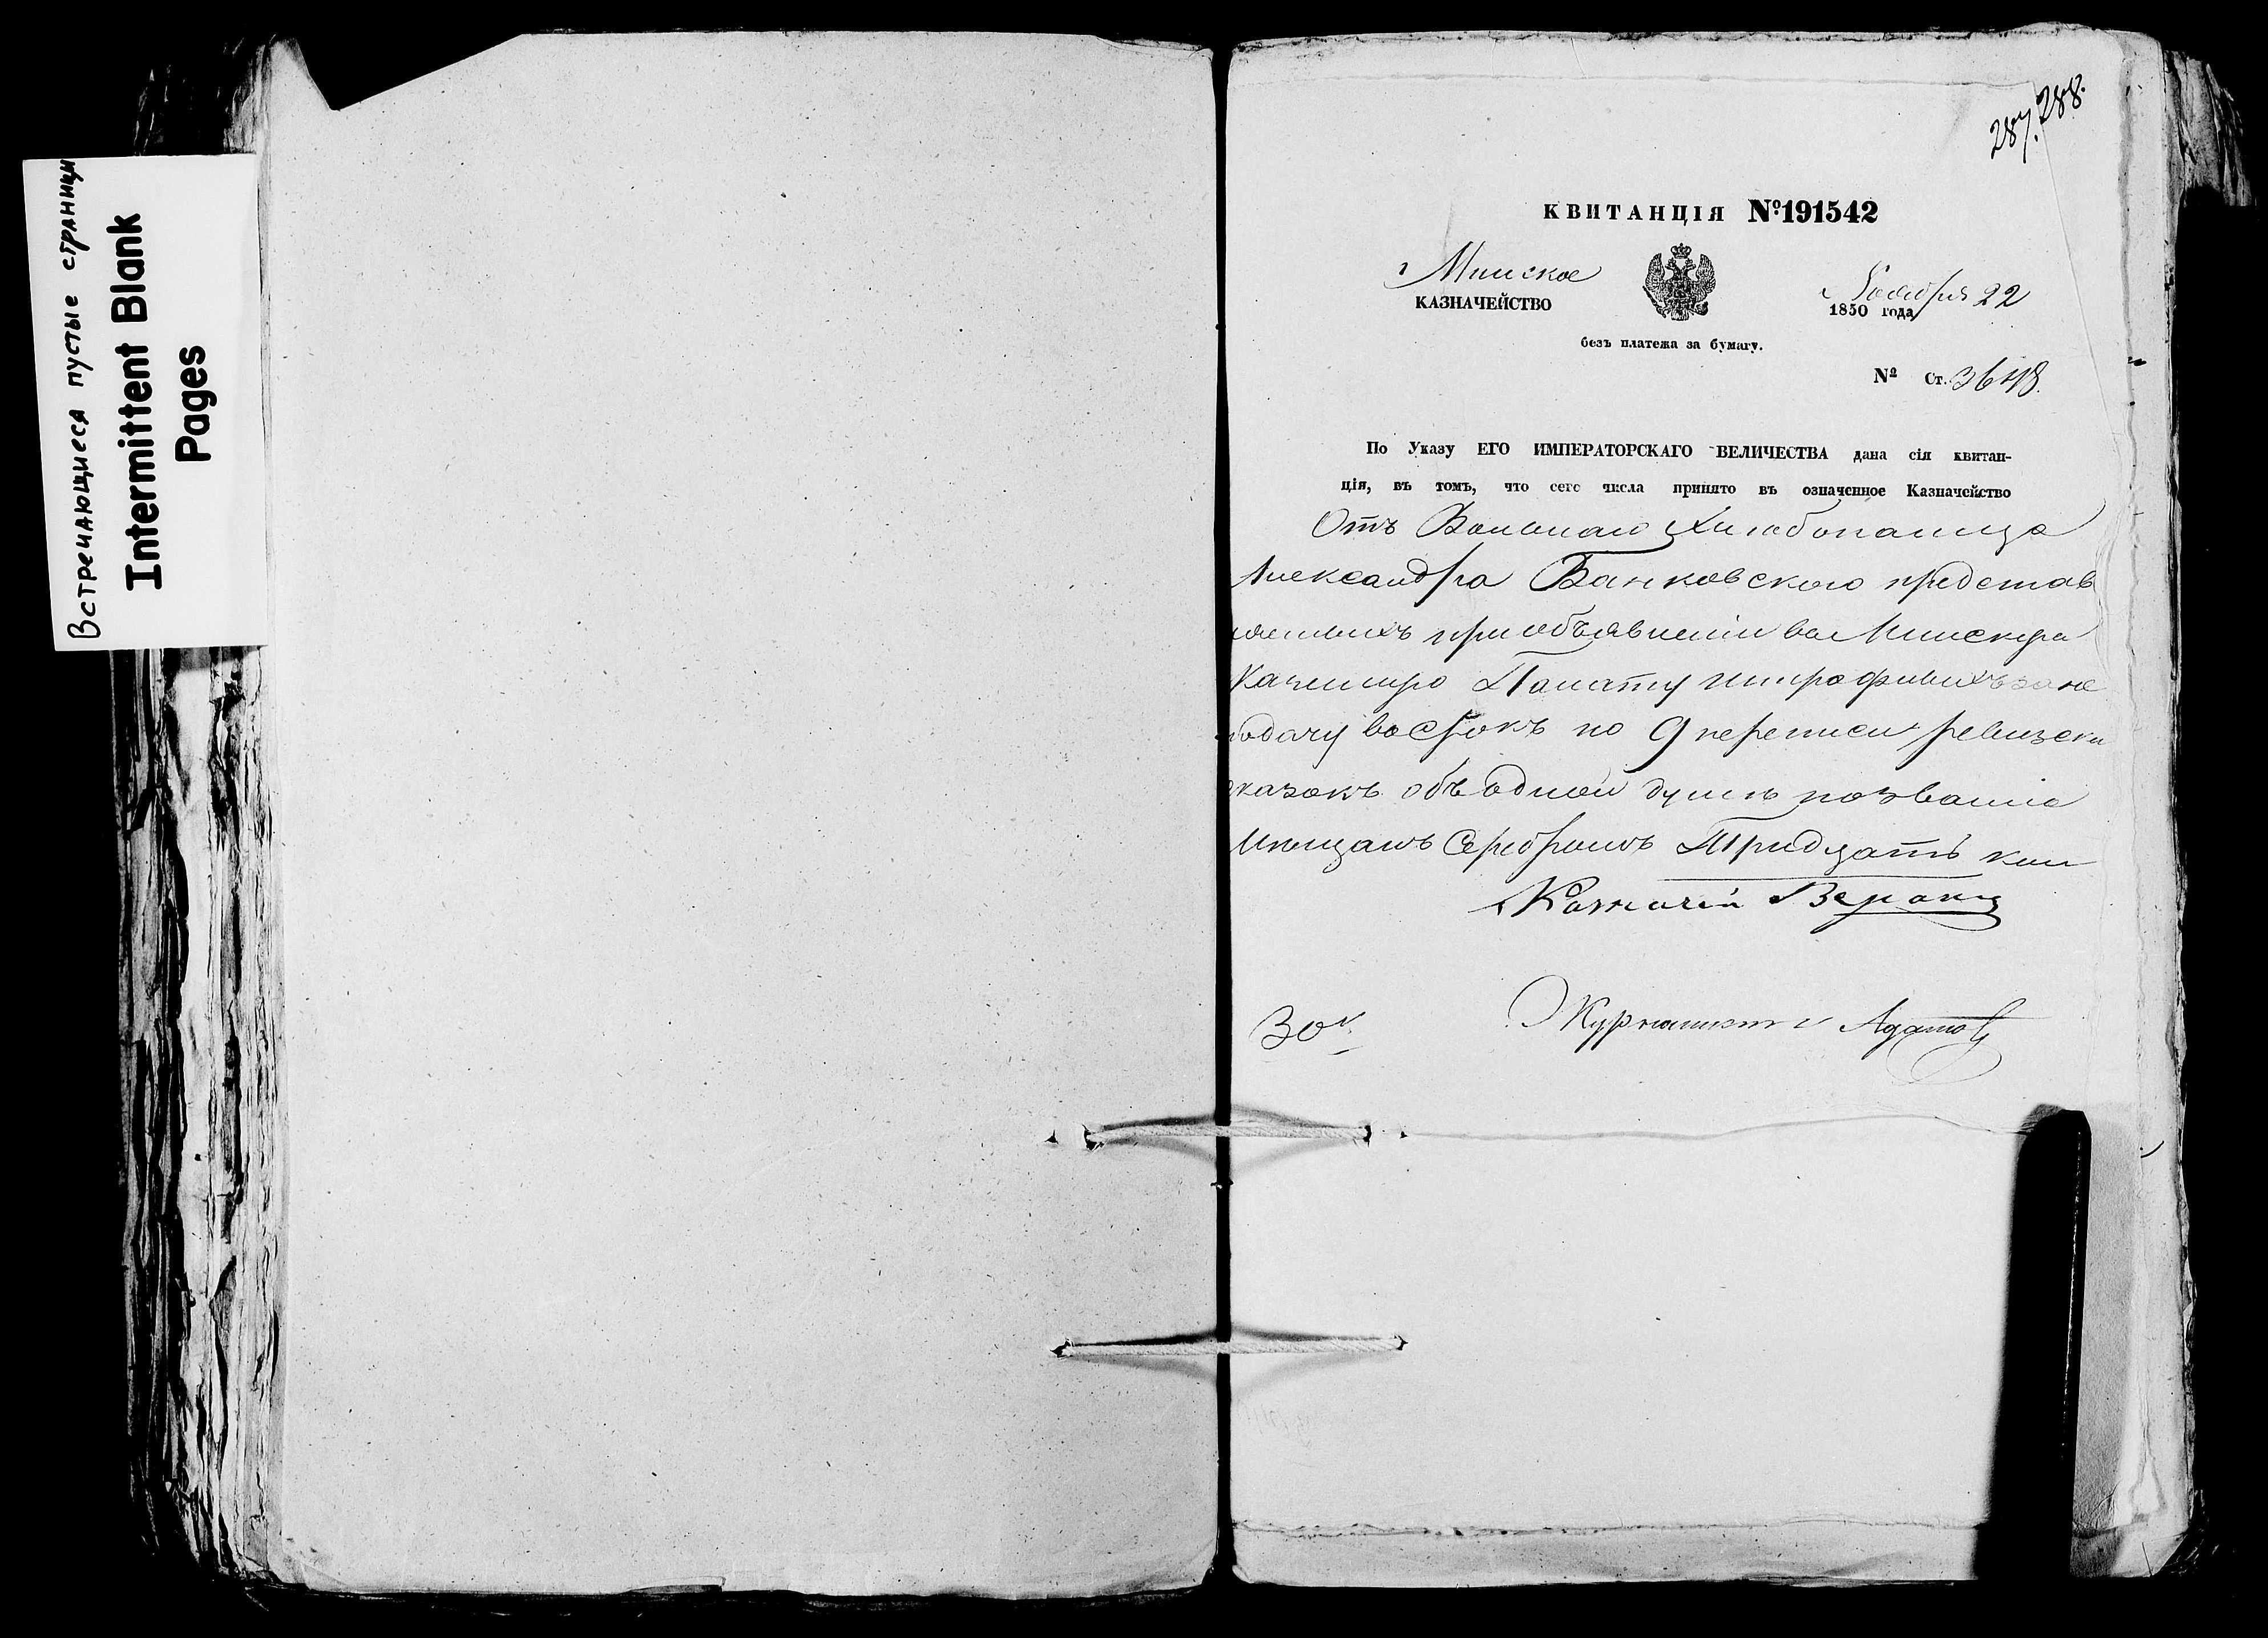 Встречающиеся пустые страницы
Intermittent Blank
Pages
287. 288.
КВИТАНЦІЯ №191542
Минское
КАЗНАЧЕЙСТВО
Ноября 22
1850 года
безъ платежа за бумагу.
№ Ст. 3648.
По Указу ЕГО ИМПЕРАТОРСКАГО ВЕЛИЧЕСТВА дана сія квитан-
ція, въ томъ, что сего числа принято въ означенное Казначейство
Отъ Вольнаго Хлѣбопашца
Александра Банковского представ
при объявленіи во Минскую
Казенную Палату штрафныхъ за не
подачу во срокъ по 9 переписи ревизски
сказокъ объ одной душѣ по званію
Мѣщанъ Серебромъ Тридцать коп
Казначей
30 к
Журналистъ